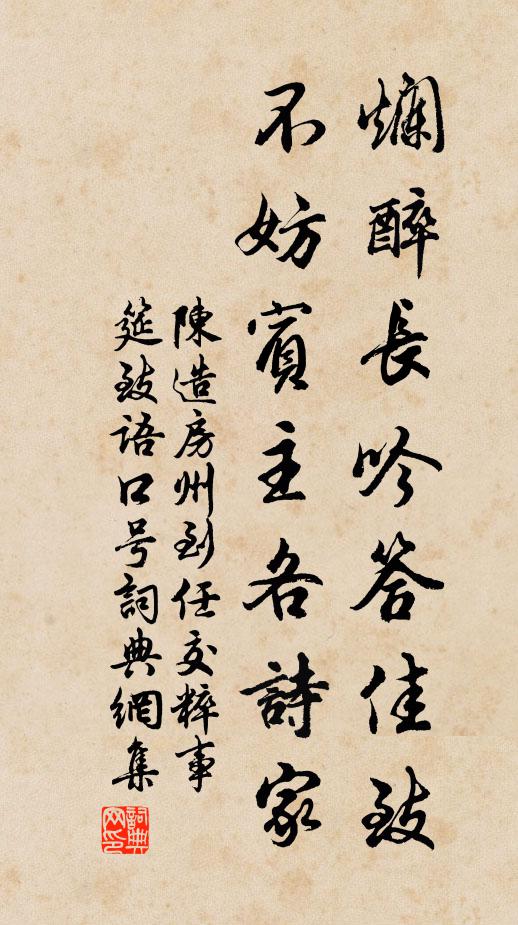 爛醉長吟答佳致
不妨賓主各詩家
陳造房州到任交粹事
筵致語口号詞典網集
詞典网印